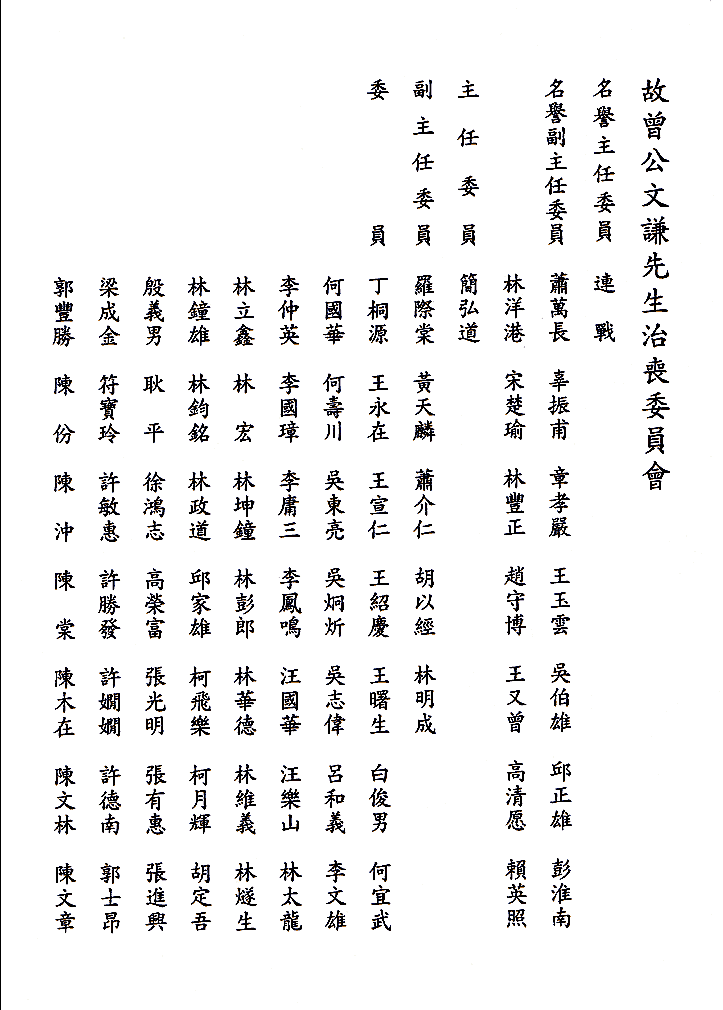 故曾公文謙先生治喪委員會
名譽主任委員 連戰
名譽副主任委員 蕭萬長 辜振甫 章孝嚴 王玉雲 吳伯雄 邱正雄 彭淮南
林洋港 宋楚瑜 林豐正 趙守博 王又曾 高清愿 賴英照
主任委員 簡弘道
副主任委員 羅際棠 黃天麟 蕭介仁 胡以經 林明成
委員 丁桐源 王永在 王宣仁 王紹慶 王曙生 白俊男 何宜武
何國華 何壽川 吳東亮 吳炯炘 吳志偉 呂和義 李文雄
李仲英 李國璋 李庸三 李鳳鳴 汪國華 汪樂山 林太龍
林立鑫 林宏 林坤鐘 林彭郎 林華德 林維義 林燧生
林鐘雄 林鈞銘 林政道 邱家雄 柯飛樂 柯月輝 胡定吾
殷義男 耿平 徐鴻志 高榮富 張光明 張有惠 張進興
梁成金 符寶玲 許敏惠 許勝發 許嫺嫺 許德南 郭士昂
郭豐勝 陳份 陳沖 陳棠 陳木在 陳文林 陳文章